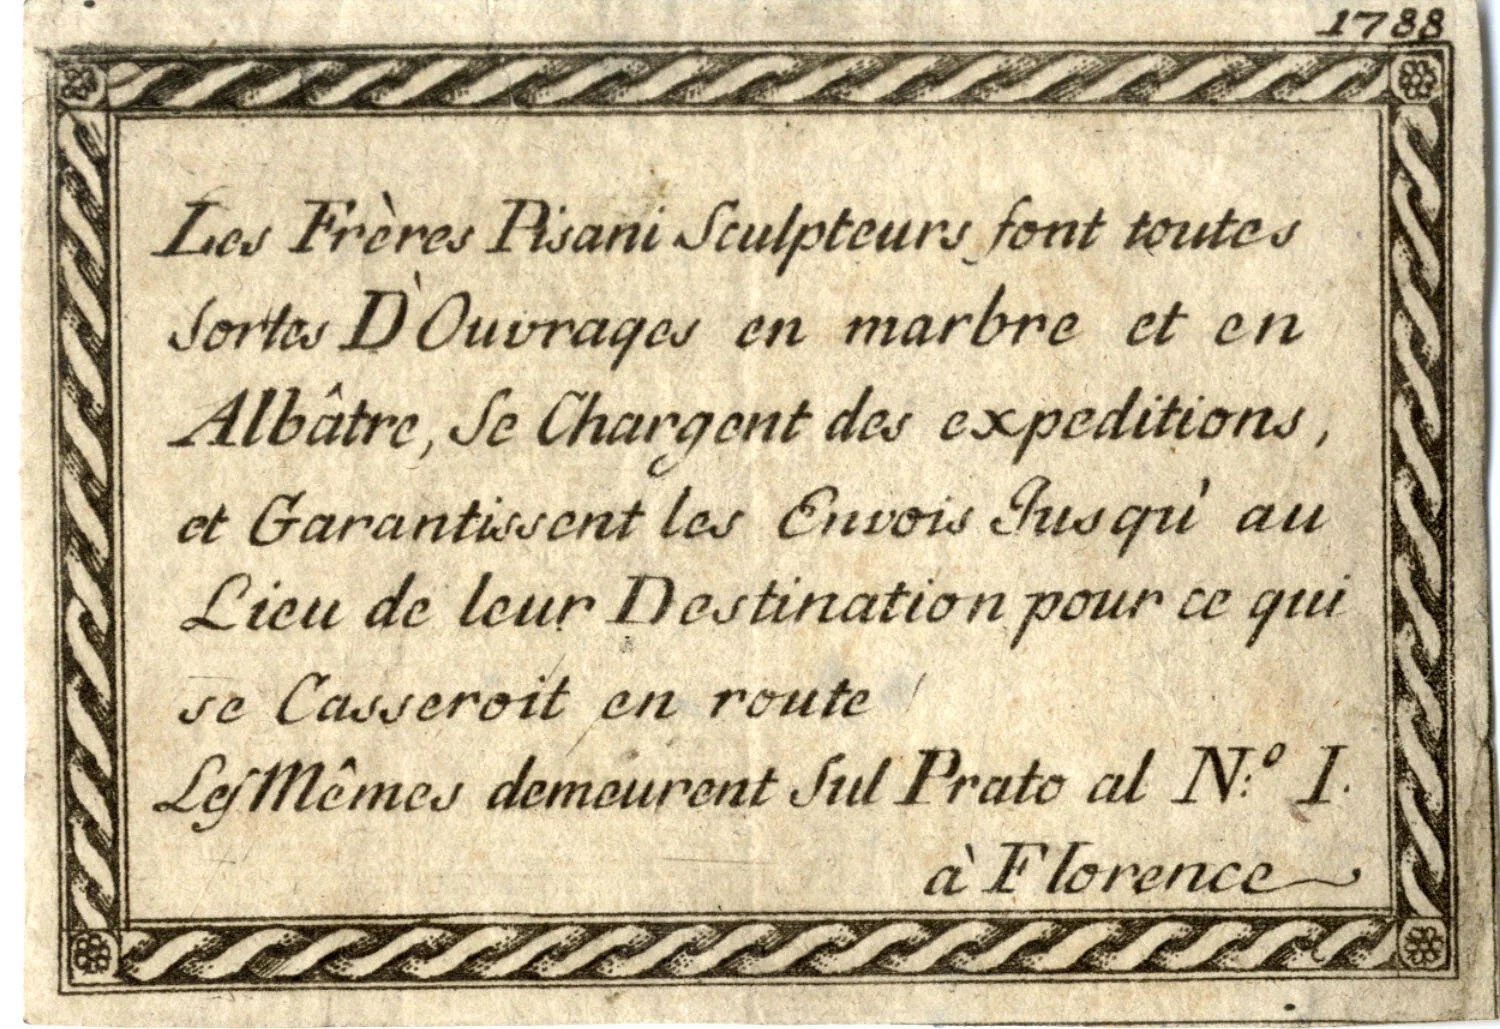 1788
Les Frères Pisani Sculpteurs font toutes
sortes D'Ouvrages en marbre et en
Albâtre, Se Chargent des expeditions,
et Garantissent les Envois Jusqu'au
Lieu de leur Destination pour ce qui
se Casseroit en route
Les Mêmes demeurent Sul Prato al N:º I.
à Florence